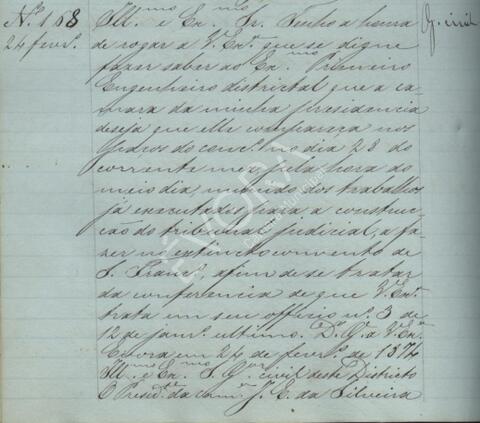 Nº 168
24 fevrº.
G. civil
Illmo e Exmo Sr. Tenho a honra
de rogar a V. Exª que se digne
fazer saber ao Exmo Primeiro
Engenheiro districtal que a ca-
mara da minha presidencia
deseja que elle compareça nos
Paços do concº no dia 28 do
corrente mez, pela hora do
meio dia, munido dos trabalhos
já executados para a construc-
ção do tribunal judicial, a fa-
zer no extincto convento de
S. Francº, afim de se tratar
da conferencia de que V. Exª
trata em seu officio nº 3 de
12 de janrº ultimo. Ds. Gde a V. Exª
Evora em 24 de fevrº de 1874
Illmo e Exmo S. Gor civil deste Districto
O Presidte da camra J. E. da Silveira
ÉVORA
Câmara Municipal